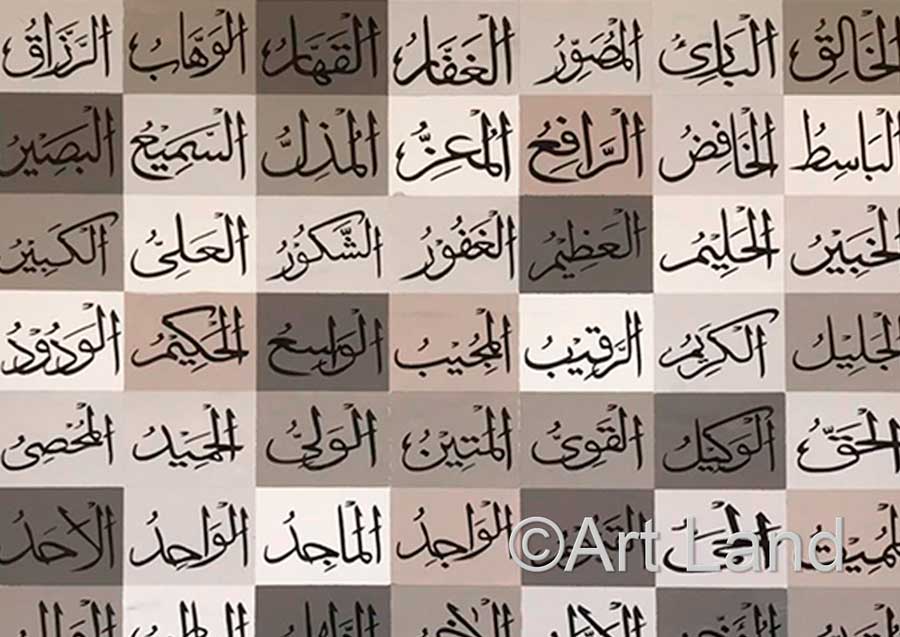 الخَالِق البَارِئُ المُصَوِّرُ الغَفَّارُ القَهَّارُ الوَهَّابُ الرَّزَّاقُ
البَاسِطُ الخَافِضُ الرَّافِعُ المُعِزُّ المُذِلُّ السَّمِيْعُ البَصِيْرُ
الخَبِيْرُ الحَلِيْمُ العَظِيْمُ الغَفُوْرُ الشَّكُوْرُ العَلِىُّ الكَبِيْرُ
الجَلِيْلُ الكَرِيْمُ الرَّقِيْبُ المُجِيْبُ الوَاسِعُ الحَكِيْمُ الوَدُوْدُ
الحَقُّ الوَكِيْلُ القَوِىُّ المَتِيْنُ الوَلِىُّ الحَمِيْدُ المُحْصِىُ
المُمِيْتُ الحَىُّ القَيُّوْمُ الوَاجِدُ المَاجِدُ الوَاحِدُ الاَحَدُ
©Art Land